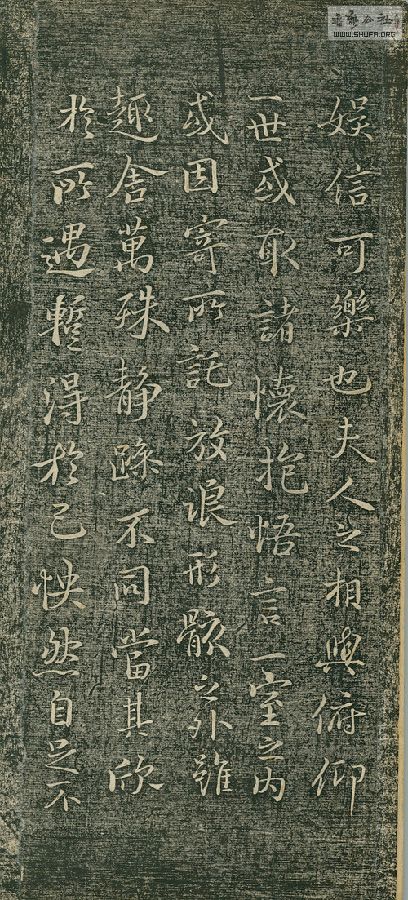 娛信可樂也夫人之相與俯仰
一世或取諸懷抱悟言一室之內
或因寄所託放浪形骸之外雖
趣舍萬殊静躁不同當其欣
於所遇暫得於己怏然自足不
WWW.SHUFA.ORG